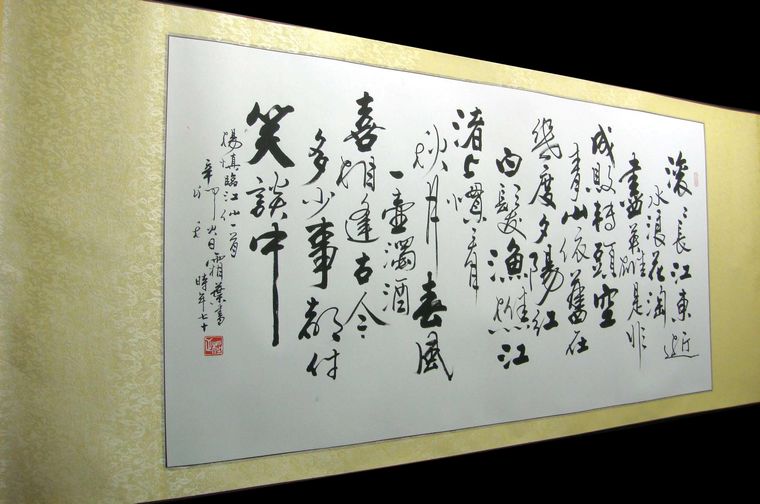 滚々長江東逝
水浪花淘
盡英雄是非
成敗轉頭空
青山依舊在
幾度夕陽紅
白髮漁樵江
渚上慣看
秋月春風
一壺濁酒
喜相逢古今
多少事都付
笑談中
楊慎臨江仙一首
辛卯六日霜葉書
時年七十